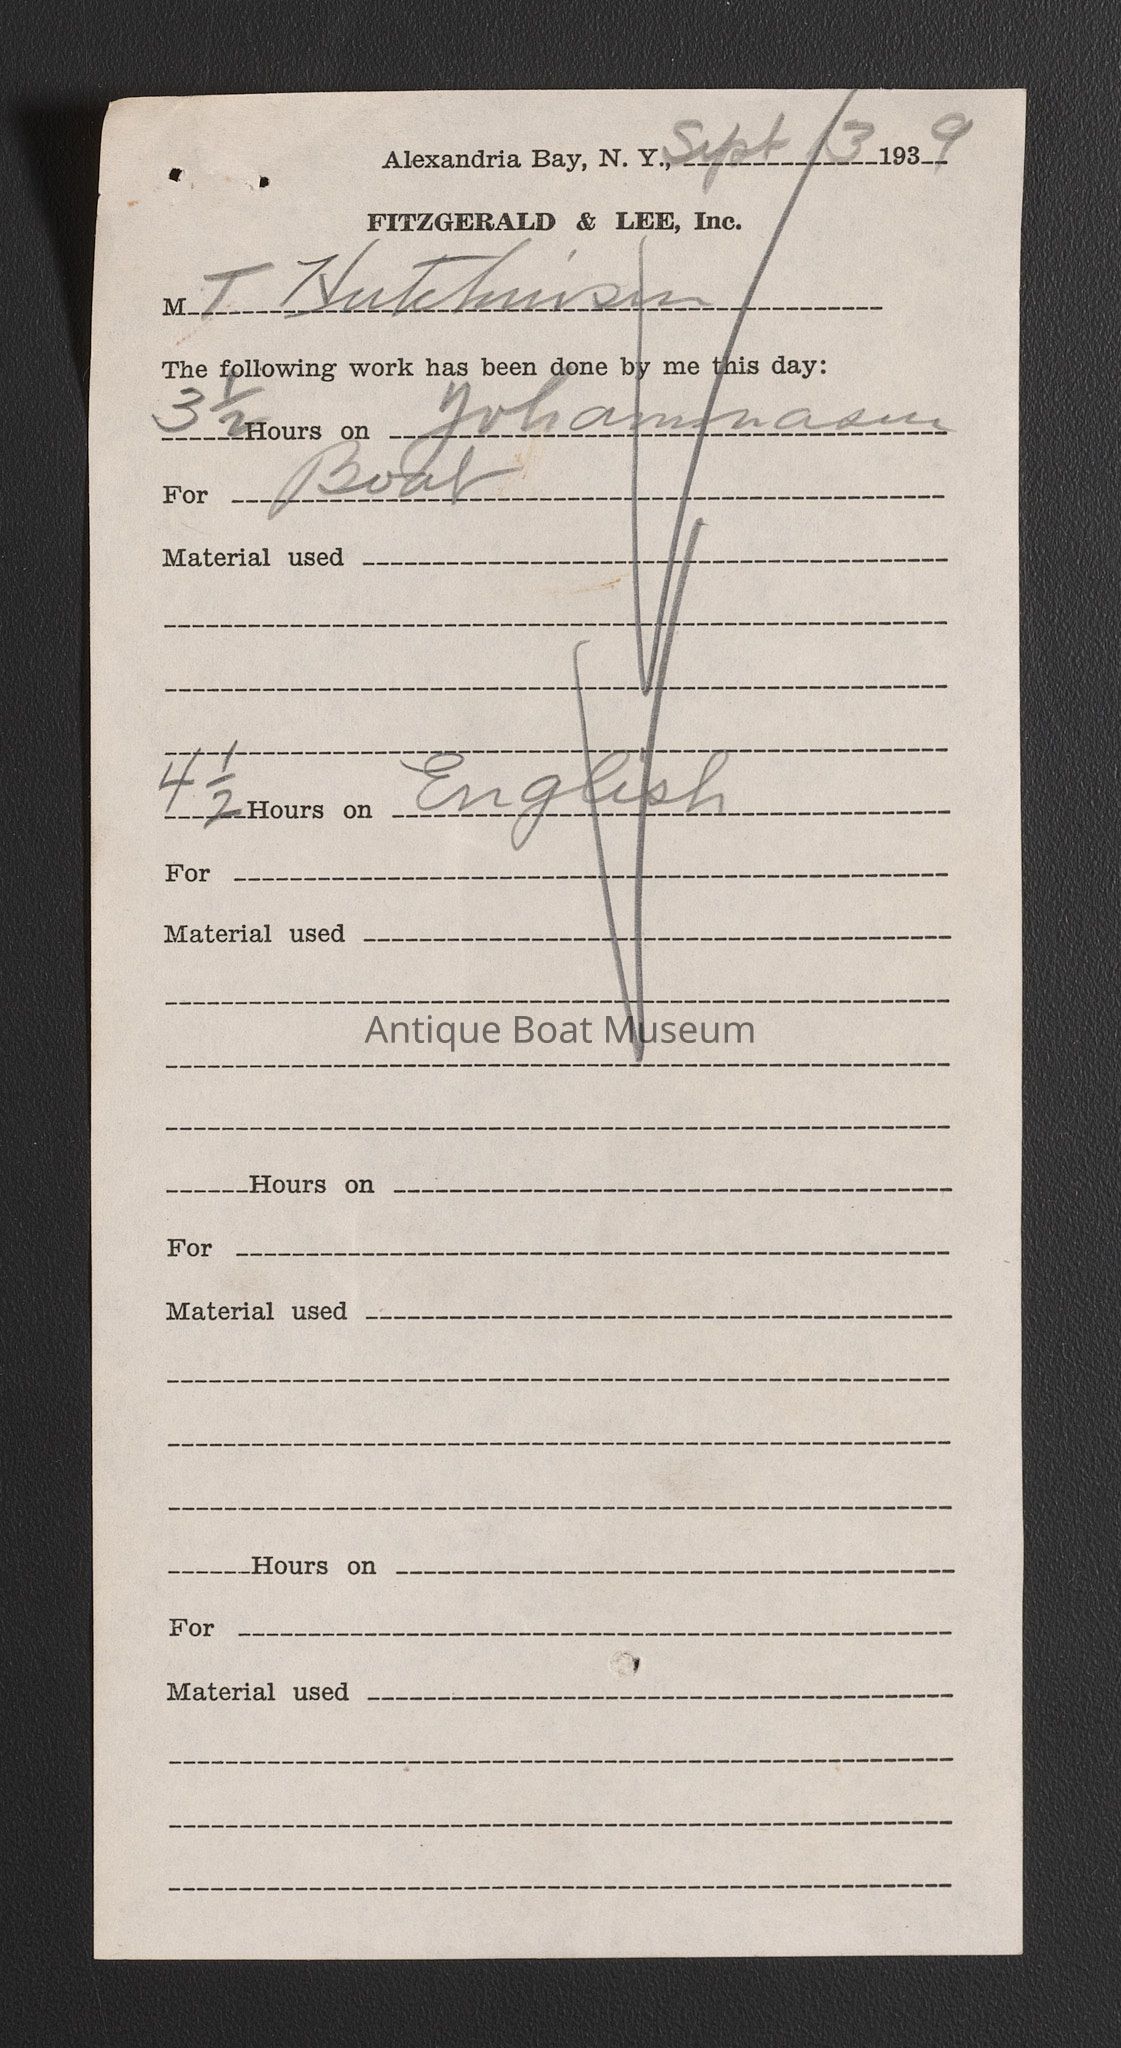 Alexandria Bay, N. Y., Sept 13 1939
FITZGERALD & LEE, Inc.
M T Hutchinson
The following work has been done by me this day:
3 1/2 Hours on Yohannasen
For Boat
Material used
4 1/2 Hours on English
For
Material used
Antique Boat Museum
Hours on
For
Material used
Hours on
For
Material used